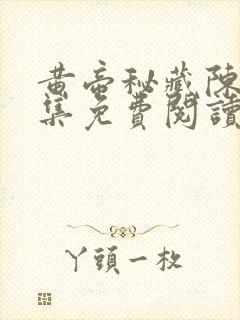 黄帝秘藏陳
集免費閱讀
丫頭一枚